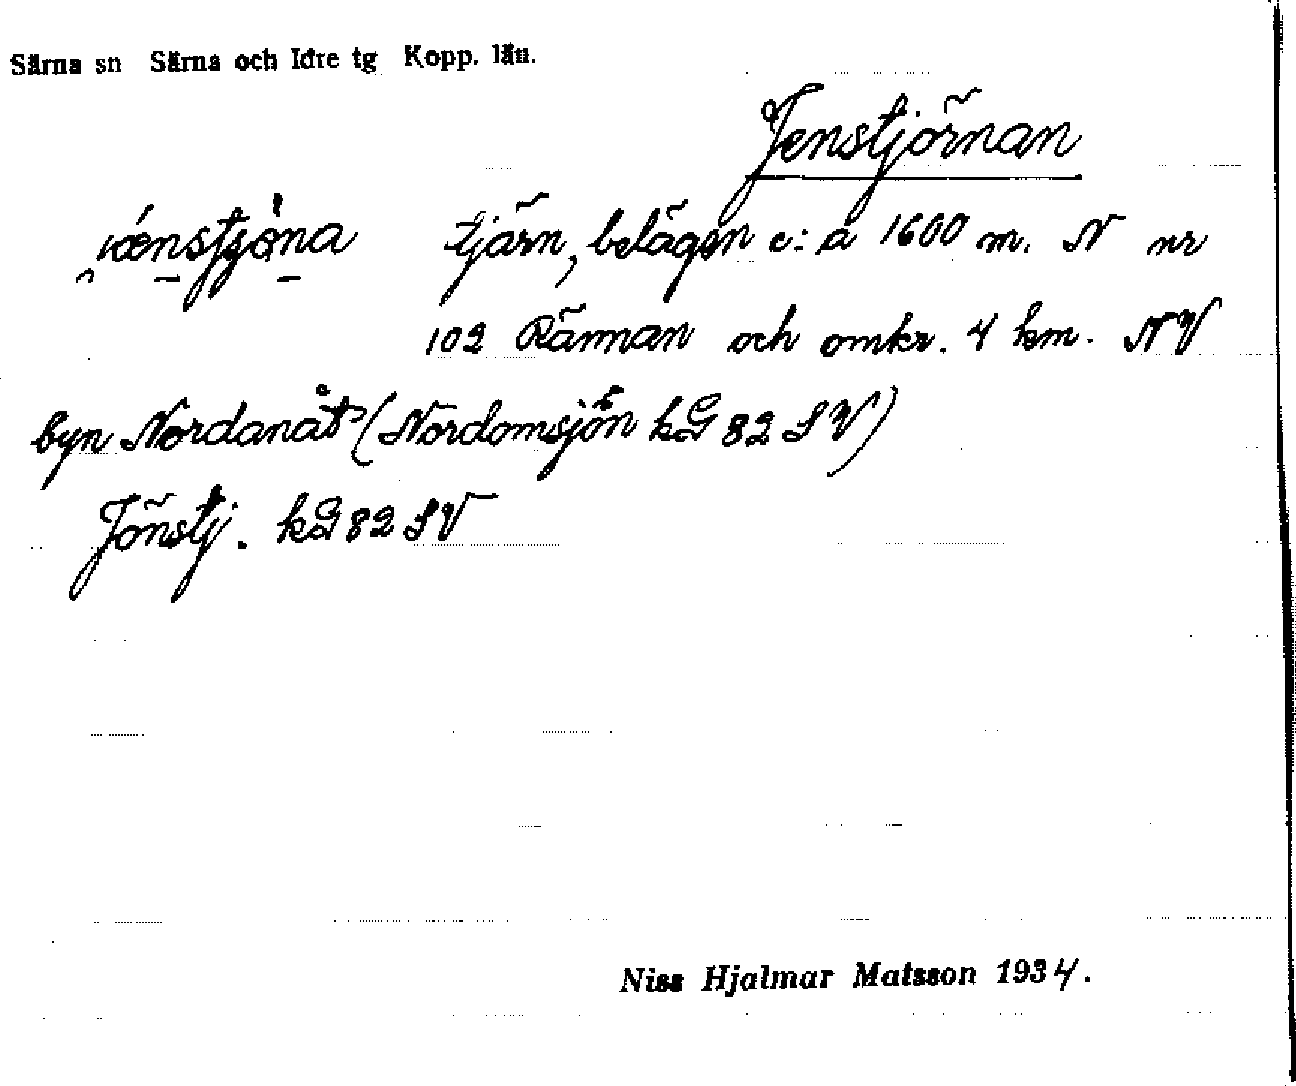 Särna sn Särna och Idre tg Kopp. län.
Jenstjörnan
tjärn, belägen c:a 1600 m. N nr
102 Rännan och omkr. 4 km. NV
byn Nordanåt (Nordomsjön kG 82 SV)
Jönstj. kG 82 SV
Niss Hjalmar Matsson 1934.